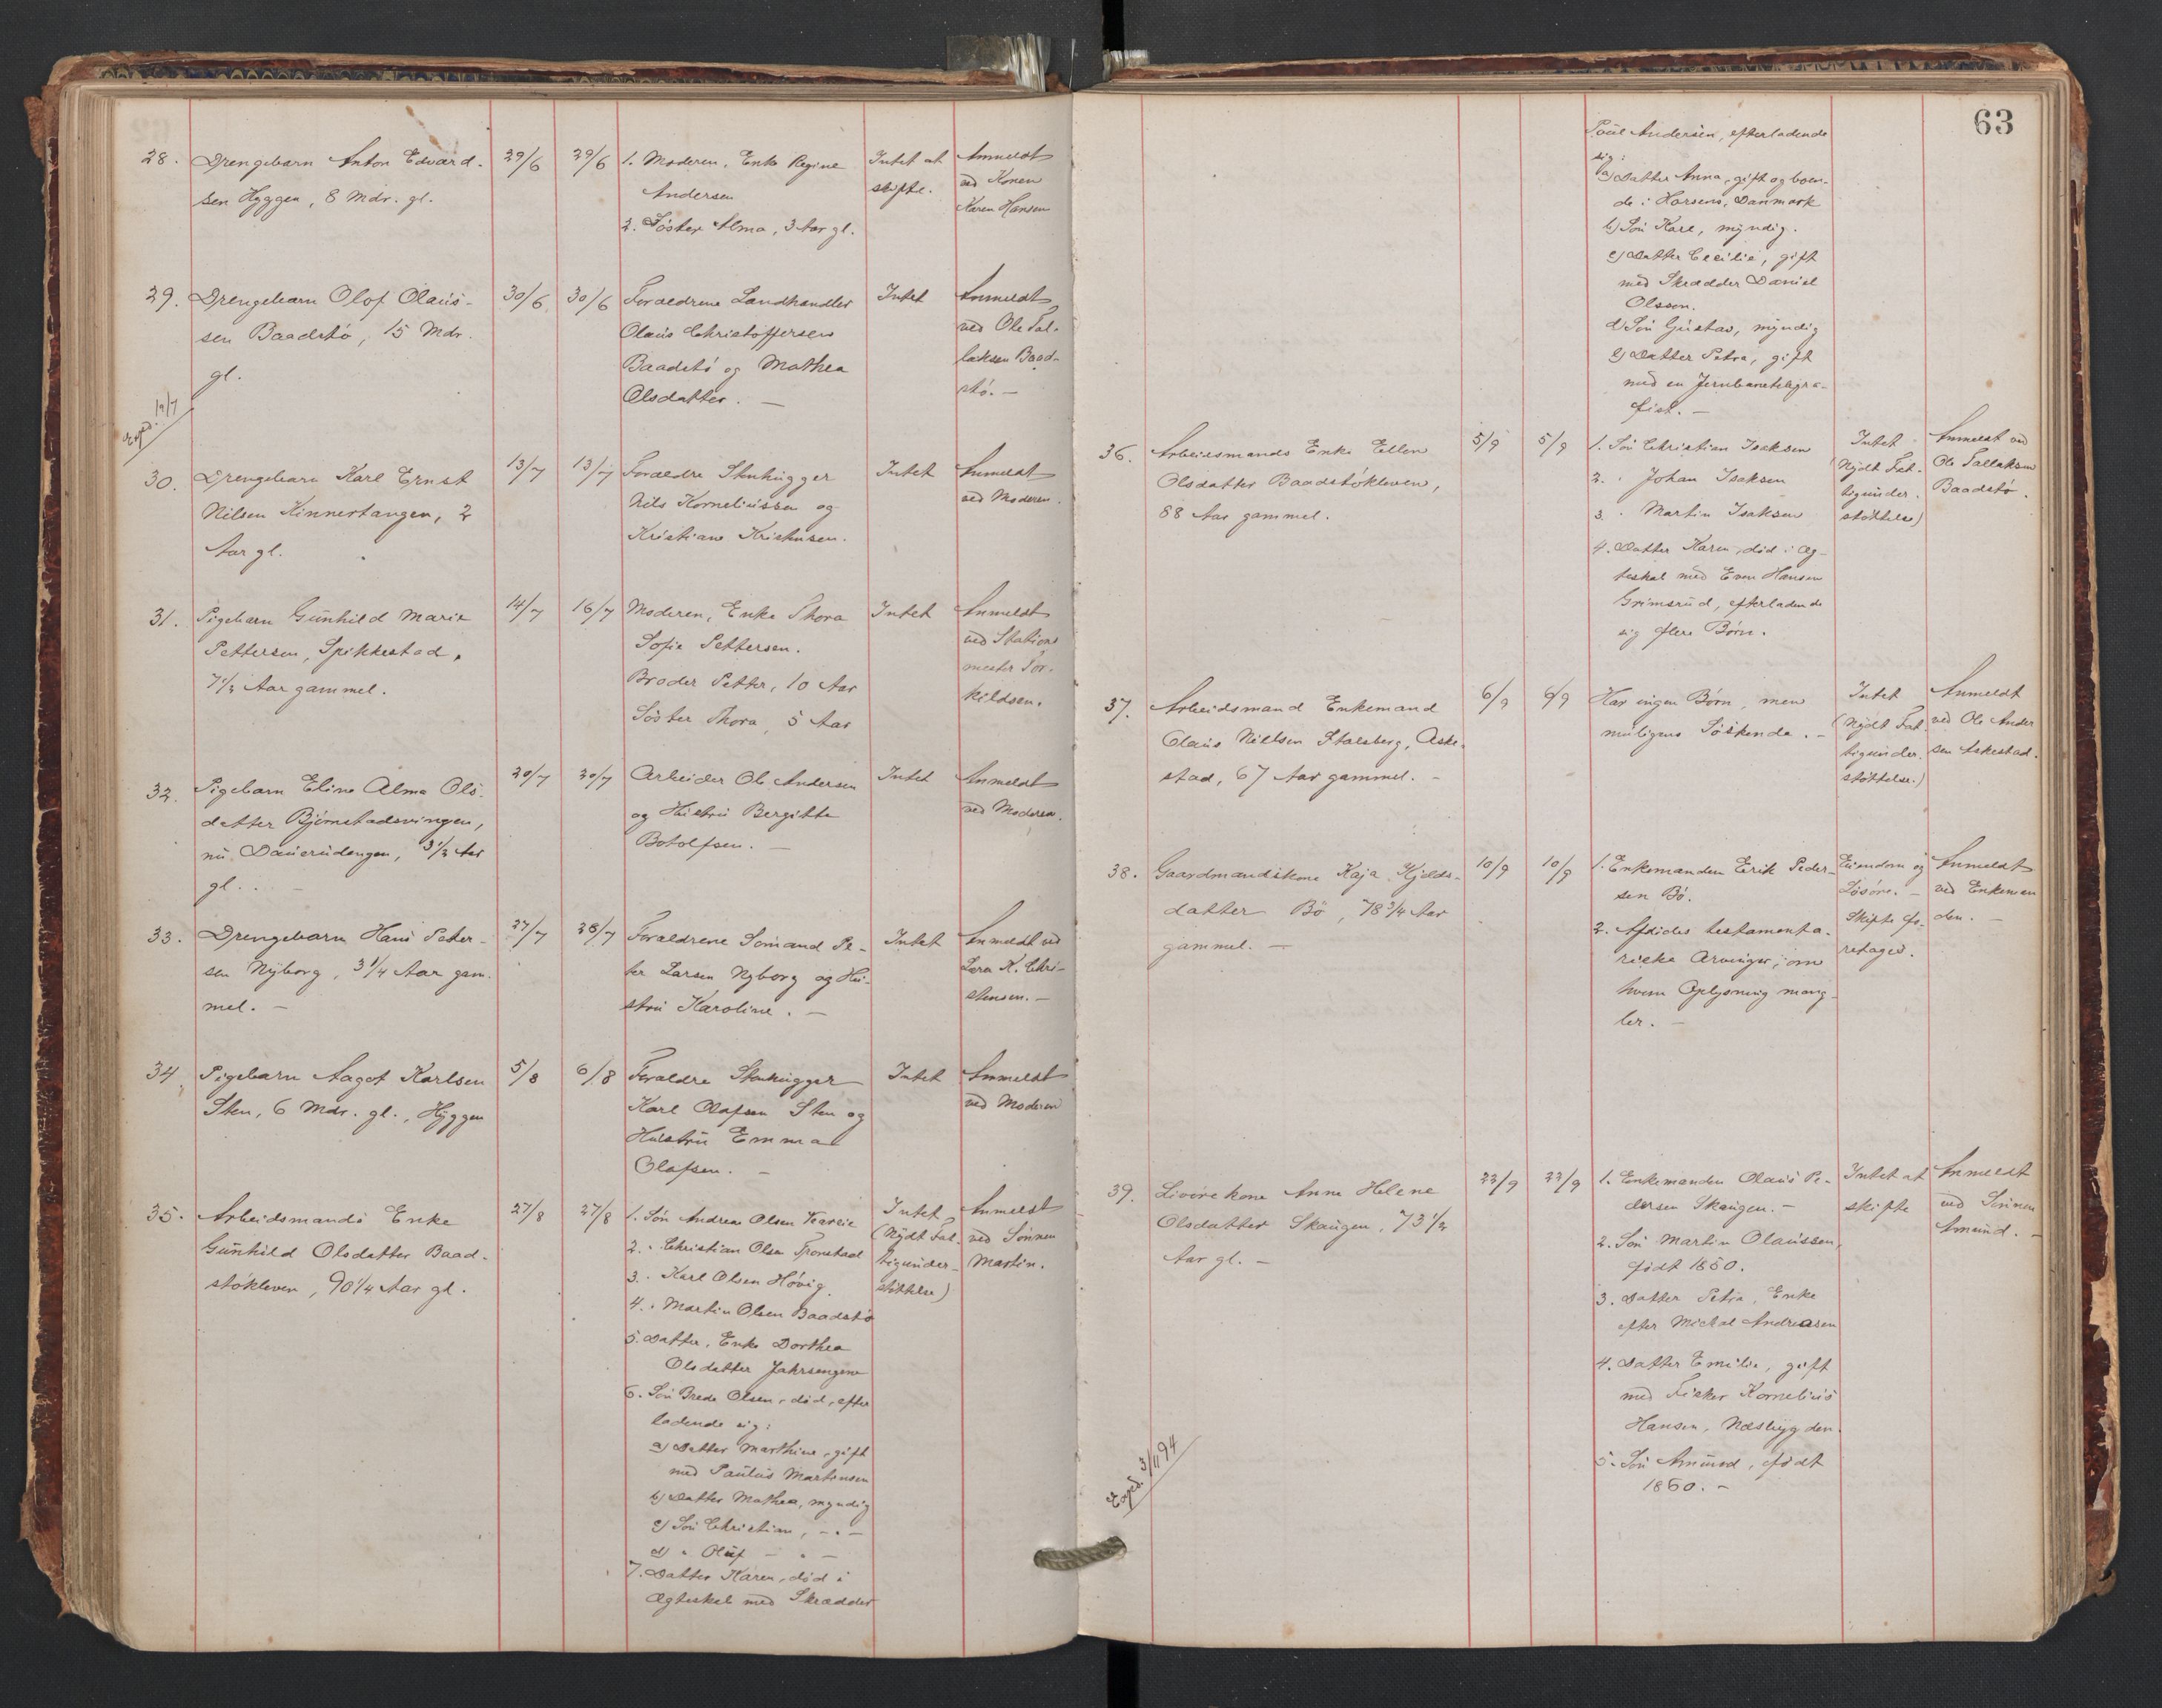 28.
Drengebarn Anton Edvard-
sen Hyggen, 8 Mdr. gl.
29/6
29/6
1. Moderen, Enke Regine
Andersen
2. Söster Alma, 3 Aar gl.
Intet at
skifte.
Anmeldt
ved Konen
Karen Hansen
29.
Drengebarn Olof Olaus-
sen Baadstö, 15 Mdr.
gl.
30/6
30/6
Forældrene Landhandler
Olaus Christoffersen
Baadstö og Mathea
Olsdatter. —
Intet
Anmeldt
ved Ole Tal-
laksen Baad-
stö. —
Exped. 19/7
30.
Drengebarn Karl Ernst
Nilsen Kinnertangen, 2
Aar gl.
13/7
13/7
Forældre Stenhugger
Nils Korneliussen og
Kristiane Kristensen.
Intet
Anmeldt
ved Moderen.
31.
Pigebarn Gunhild Marie
Pettersen, Spikkestad,
7 1/2 Aar gammel.
14/7
16/7
Moderen, Enke Thora
Sofie Pettersen.
Broder Petter, 10 Aar
Söster Thora, 5 Aar
Intet
Anmeldt
ved Stations
mester Tor-
kildsen.
32.
Pigebarn Eline Alma Ols-
datter Björnstadsvingen,
nu Dauerudengen, 3 1/2 Aar
gl. —
20/7
20/7
Arbeider Ole Andersen
og Hustru Bergitte
Botolfsen. —
Intet
Anmeldt
ved Moderen.
33.
Drengebarn Hans Peter-
sen Nyborg, 3 1/4 Aar gam-
mel. —
27/7
28/7
Forældrene Sömand Pe-
ter Larsen Nyborg og Hu-
stru Karoline. —
Intet
Anmeldt ved
Lars K. Chri-
stensen. —
34
Pigebarn Aagot Karlsen
Sten, 6 Mdr. gl., Hyggen
5/8
6/8
Forældre Stenhugger
Karl Olafsen Sten og
Hustru Emma
Olafsen. —
Intet
Anmeldt
ved Moderen
35.
Arbeidsmands Enke
Gunhild Olsdatter Baad-
stökleven, 90 1/4 Aar gl.
27/8
27/8
1. Sön Andreas Olsen
2. " Christian Olsen Tronstad
3. " Karl Olsen Hövig
4. " Martin Olsen Baadstö
5. Datter, Enke Dorthea
Olsdatter Jahrsengene
6. Sön Brede Olsen, död, efter
ladende sig:
a) Datter Marthine, gift
med Paulus Martinsen
b) Datter Mathea, myndig
c) Sön Christian, — " —
d) " Oluf — " —
7. Datter Karen, död i
Ægteskab med Skrædder
Intet
(Nydt Fat-
tigunder-
stöttelse)
Anmeldt
ved Sönnen
Martin.
63
Poul Andersen, efterladende
sig:
a) Datter Anna, gift og boen-
de i Horsens, Danmark
b) Sön Karl, myndig.
c) Datter Cecilie, gift
med Skrædder Daniel
Olsson.
d) Sön Gustav, myndig
e) Datter Petra, gift
med en Jernbanetelegra-
fist. —
36.
Arbeidsmands Enke Ellen
Olsdatter Baadstökleven,
88 Aar gammel.
5/9
5/9
1. Sön Christian Isaksen
2. " Johan Isaksen
3. " Martin Isaksen
4. Datter Karen, död i Æg-
teskab med Even Hansen
Grimsrud, efterladende
sig flere Börn.
Intet
(Nydt Fat-
tigunder-
stöttelse)
Anmeldt ved
Ole Tallaksen
Baadstö.
37.
Arbeidsmand Enkemand
Olaus Nielsen Stalsberg, Aske-
stad, 67 Aar gammel. —
6/9
6/9
Har ingen Börn, men
muligens Söskende. —
Intet
(Nydt Fat-
tigunder-
stöttelse.)
Anmeldt
ved Ole Ander
sen Askestad.
38.
Gaardmandskone Kaja Kjelds-
datter Bö, 78 3/4 Aar
gammel. —
10/9
10/9
1. Enkemanden Eerik Peder-
sen Bö.
2. Afdödes testamenta-
riske Arvinger, om
hvem Oplysning mang-
ler. —
Eiendom og
Lösöre. —
Skifte fo-
retages.
Anmeldt
ved Enkeman
den. —
39.
Livörekone Anne Helene
Olsdatter Skaugen, 73 1/2
Aar gl. —
22/9
22/9
1. Enkemanden Olaus Pe-
dersen Skaugen. —
2. Sön Martin Olaussen,
födt 1850.
3. Datter Petra, Enke
efter Mickal Andreasen
4. Datter Emilie, gift
med Fisker Kornelius
Hansen, Næsbygden.
5. Sön Amund, födt
1860. —
Intet at
skifte
Anmeldt
ved Sönnen
Amund. —
Exped. 3/11 94